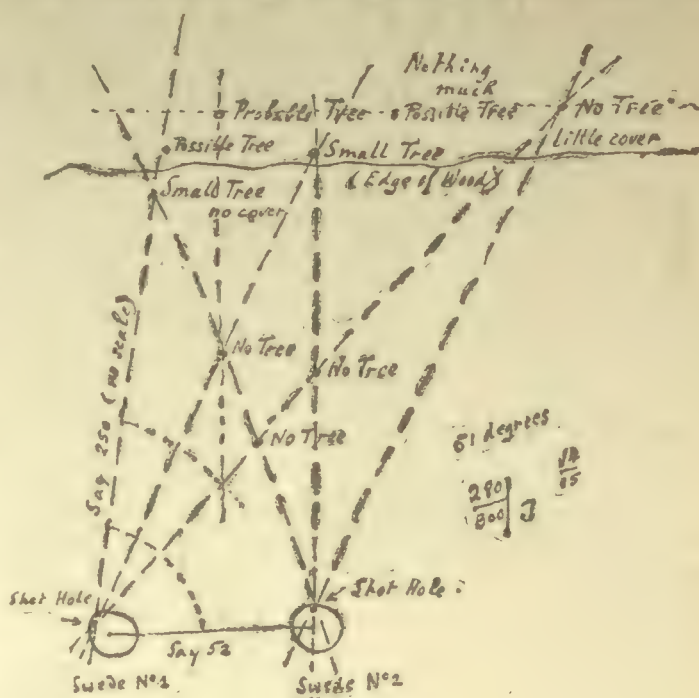 Nothing
much
Probable Tree
Possible Tree
No Tree
Possible Tree
Small Tree
Little cover
(Edge of Wood)
Small Tree
no cover
Say 250 (no scale)
No Tree
No Tree
No Tree
51 degrees
280
800
Shot Hole
Shot Hole
Say 52
Swede No1
Swede No2